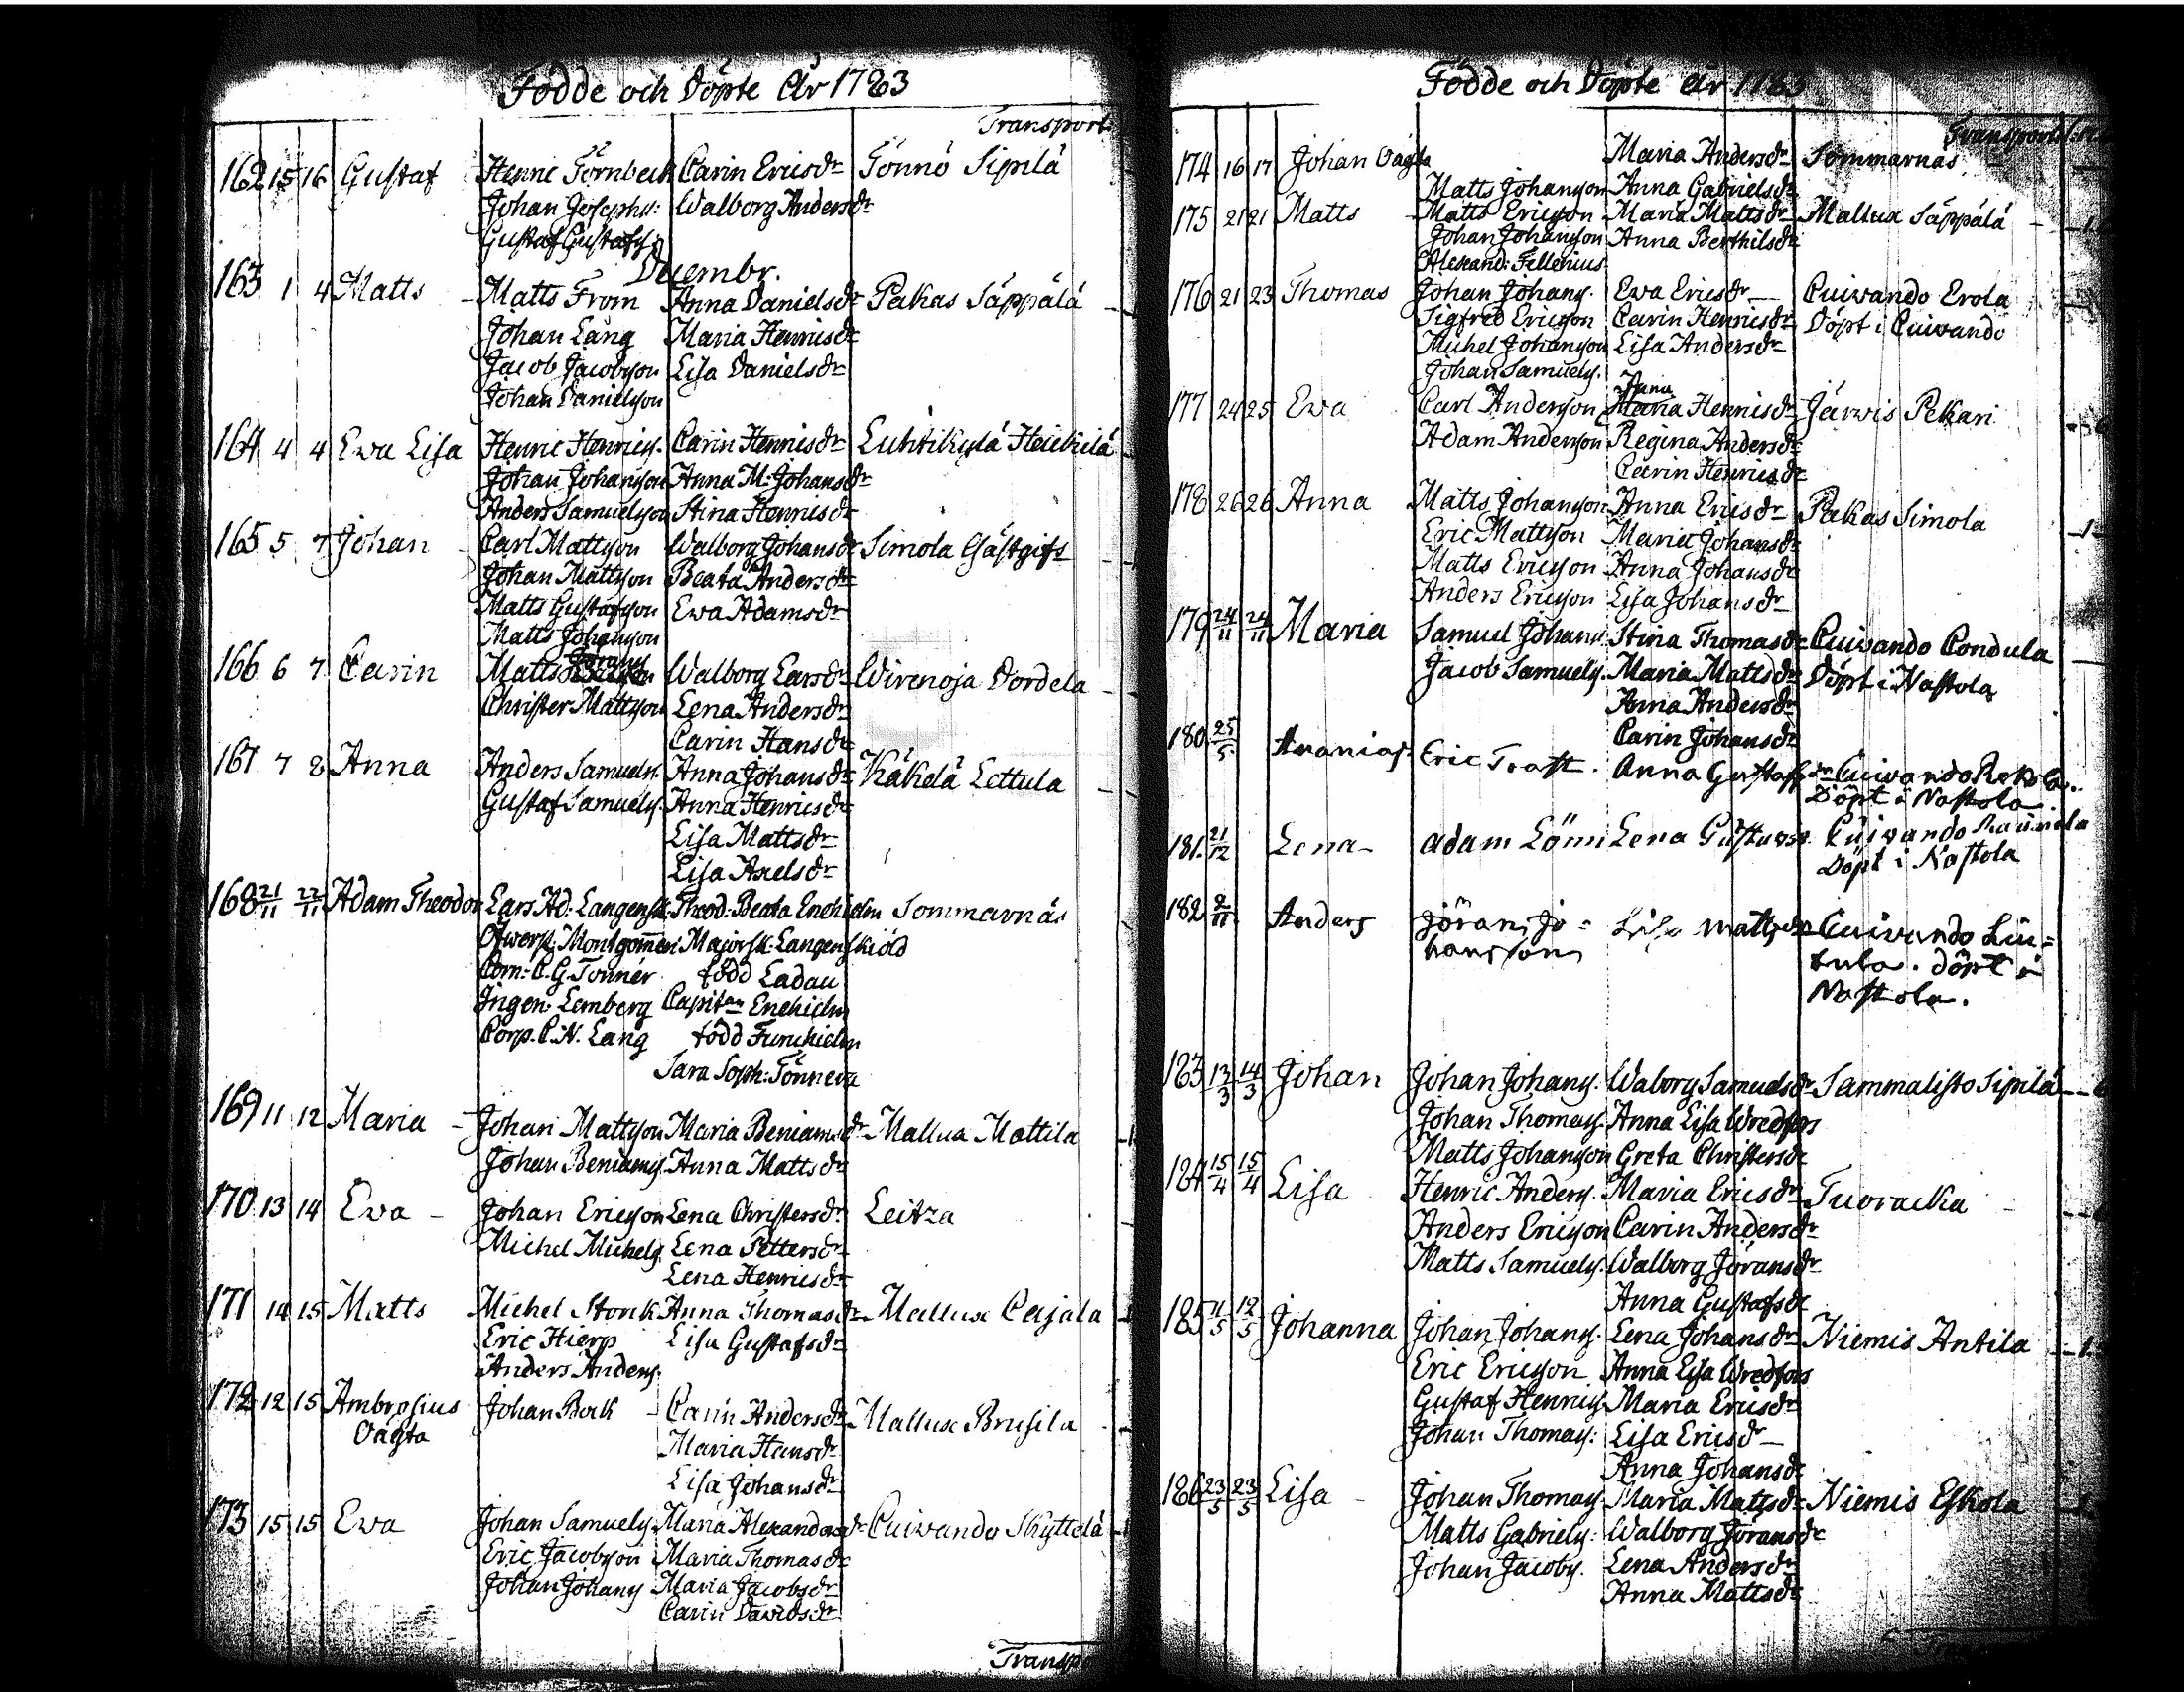 Födde och Döpte År 1783
Transport
162 15 16 Gustaf Henric Törnbeck Carin Ericsdr Tönnö Sipilä
Johan Josephs: Walborg Andersdr
Gustaf Gustafs:
Decembr.
163 1 4 Matts - Matts From Anna Danielsdr Pakas Säppälä
Johan Lång Maria Henricsdr
Jacob Jacobsson Lisa Danielsdr
Johan Danielsson
164 4 4 Ewa Lisa Henric Henrics. Carin Henricsdr Luhtikylä Heickilä
Johan Johansson Anna M: Johansdr
Anders Samuelsson Stina Henricsdr
165 5 7 Johan - Carl Mattsson Walborg Johansdr Simola Gästgifs
Johan Mattsson Beata Andersdr
Matts Gustafsson Ewa Adamsdr
Matts Johansson
166 6 7 Carin Matts Görans Walborg Larsdr Wirenoja Dordela
Christer Mattsson Lena Andersdr
Carin Hansdr
167 7 8 Anna Anders Samuels. Anna Johansdr Käkelä Lettula
Gustaf Samuels. Anna Henricsdr
Lisa Mattsdr
Lisa Axelsdr
168 21/11 22/11 Adam Theodor Lars Ad: Langensk: Theod: Beata Enehielm Sommarnäs
Öfwerst: Montgomeri Majorsk: Langenskiöld
Corn: C. G. Tonnér född Ladau
Ingen: Lemberg Capitan Enehielm
Corp. C. N. Lang född Furuhielm
Sara Soph: Tönnera
169 11 12 Maria - Johan Mattsson Maria Beniamsdr Mallua Mattila
Johan Beniams. Anna Mattsdr
170 13 14 Ewa - Johan Ericsson Lena Christersdr Leitza
Michel Michels. Lena Pettersdr
Lena Henricsdr
171 14 15 Matts Michel Storck Anna Thomasdr Mallua Cajala
Eric Hierp Lisa Gustafsdr
Anders Anders.
172 12 15 Ambrosius Johan Bock - Carin Andersdr Mallua Brusila
Oägta Maria Hansdr
Lisa Johansdr
173 15 15 Ewa Johan Samuels. Maria Alexandersdr Cuivando Skyttelä
Eric Jacobsson Maria Thomasdr
Johan Johans. Maria Jacobsdr
Carin Davidsdr
Transp
Födde och Döpte År 1783
Transport
174 16 17 Johan Oägta Maria Andersdr Sommarnäs
Matts Johansson Anna Gabrielsdr
175 21 21 Matts - Matts Ericsson Maria Mattsdr Mallua Säppälä
Johan Johansson Anna Berthilsdr
Alexand: Fellenius
176 21 23 Thomas Johan Johans. Ewa Ericsdr Cuivando Erola
Sigfred Ericsson Carin Henricsdr Döpt i Cuivando
Michel Johansson Lisa Andersdr
Johan Samuels.
Anna
177 24 25 Ewa Carl Andersson Maria Henricsdr Järwis Pekari
Adam Andersson Regina Andersdr
Carin Henricsdr
178 26 26 Anna Matts Johansson Anna Ericsdr Pakas Simola
Eric Mattsson Maria Johansdr
Matts Ericsson Anna Johansdr
Anders Ericsson Lisa Johansdr
179 24/11 24/11 Maria Samuel Johans. Stina Thomasdr Cuivando Condula
Jacob Samuels. Maria Mattsdr Döpt i Nastola
Anna Andersdr
Carin Johansdr
180 25/5 Ananias. Eric Trast. Anna Gustafsdr Cuivando Rekola.
Döpt i Nastola.
181. 21/12 Lena - Adam Lönn Lena Gustavsd. Cuivando
Döpt i Nastola
182 2/11 Anders Jöran Jo= Lisa Mattsdr Cuivando Lin=
hansson tula. döpt i
Nastola.
183 13/3 14/3 Johan Johan Johans. Waborg Samuelsdr Sammalisto Sipilä
Johan Thomas. Anna Lisa Wredfors
Matts Johansson Greta Christersdr
184 15/4 15/4 Lisa Henric Anders. Maria Ericsdr Tuoracka
Anders Ericsson Carin Andersdr
Matts Samuels. Walborg Jöransdr
Anna Gustafsdr
185 11/5 12/5 Johanna Johan Johans. Lena Johansdr Niemis Antila
Eric Ericsson Anna Lisa Wredfors
Gustaf Henrics. Maria Ericsdr
Johan Thomas: Lisa Ericsdr
Anna Johansdr
186 23/5 23/5 Lisa - Johan Thomas. Maria Mattsdr Niemis Eskola
Matts Gabriels: Walborg Göransdr
Johan Jacobs. Lena Andersdr
Anna Mattsdr